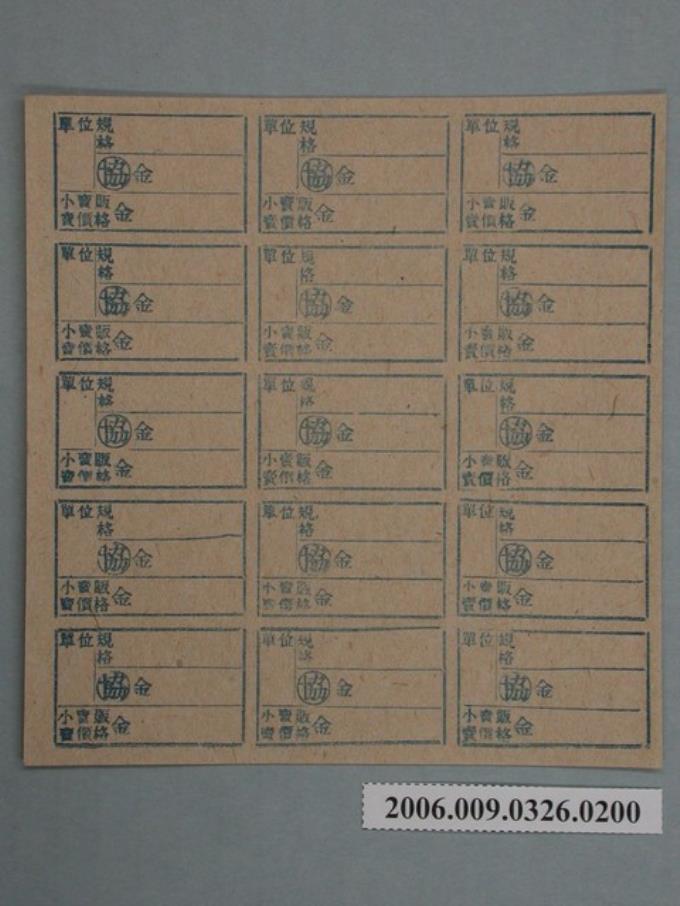 單位 規格
協 金
小賣販
賣價格 金
單位 規格
協 金
小賣販
賣價格 金
單位 規格
協 金
小賣販
賣價格 金
單位 規格
協 金
小賣販
賣價格 金
單位 規格
協 金
小賣販
賣價格 金
單位 規格
協 金
小賣販
賣價格 金
單位 規格
協 金
小賣販
賣價格 金
單位 規格
協 金
小賣販
賣價格 金
單位 規格
協 金
小賣販
賣價格 金
單位 規格
協 金
小賣販
賣價格 金
單位 規格
協 金
小賣販
賣價格 金
單位 規格
協 金
小賣販
賣價格 金
單位 規格
協 金
小賣販
賣價格 金
單位 規格
協 金
小賣販
賣價格 金
單位 規格
協 金
小賣販
賣價格 金
2006.009.0326.0200